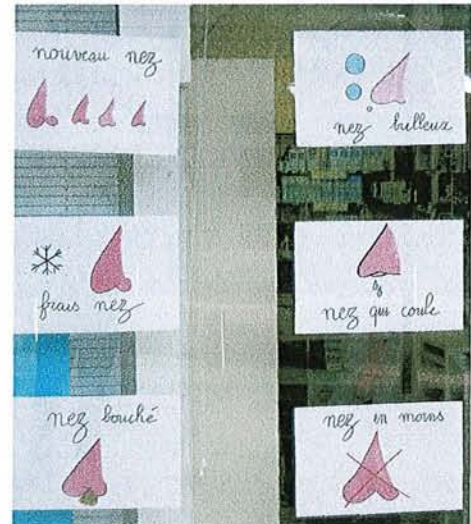 nouveau nez
frais nez
nez bouché
nez bulleux
nez qui coule
nez en moins